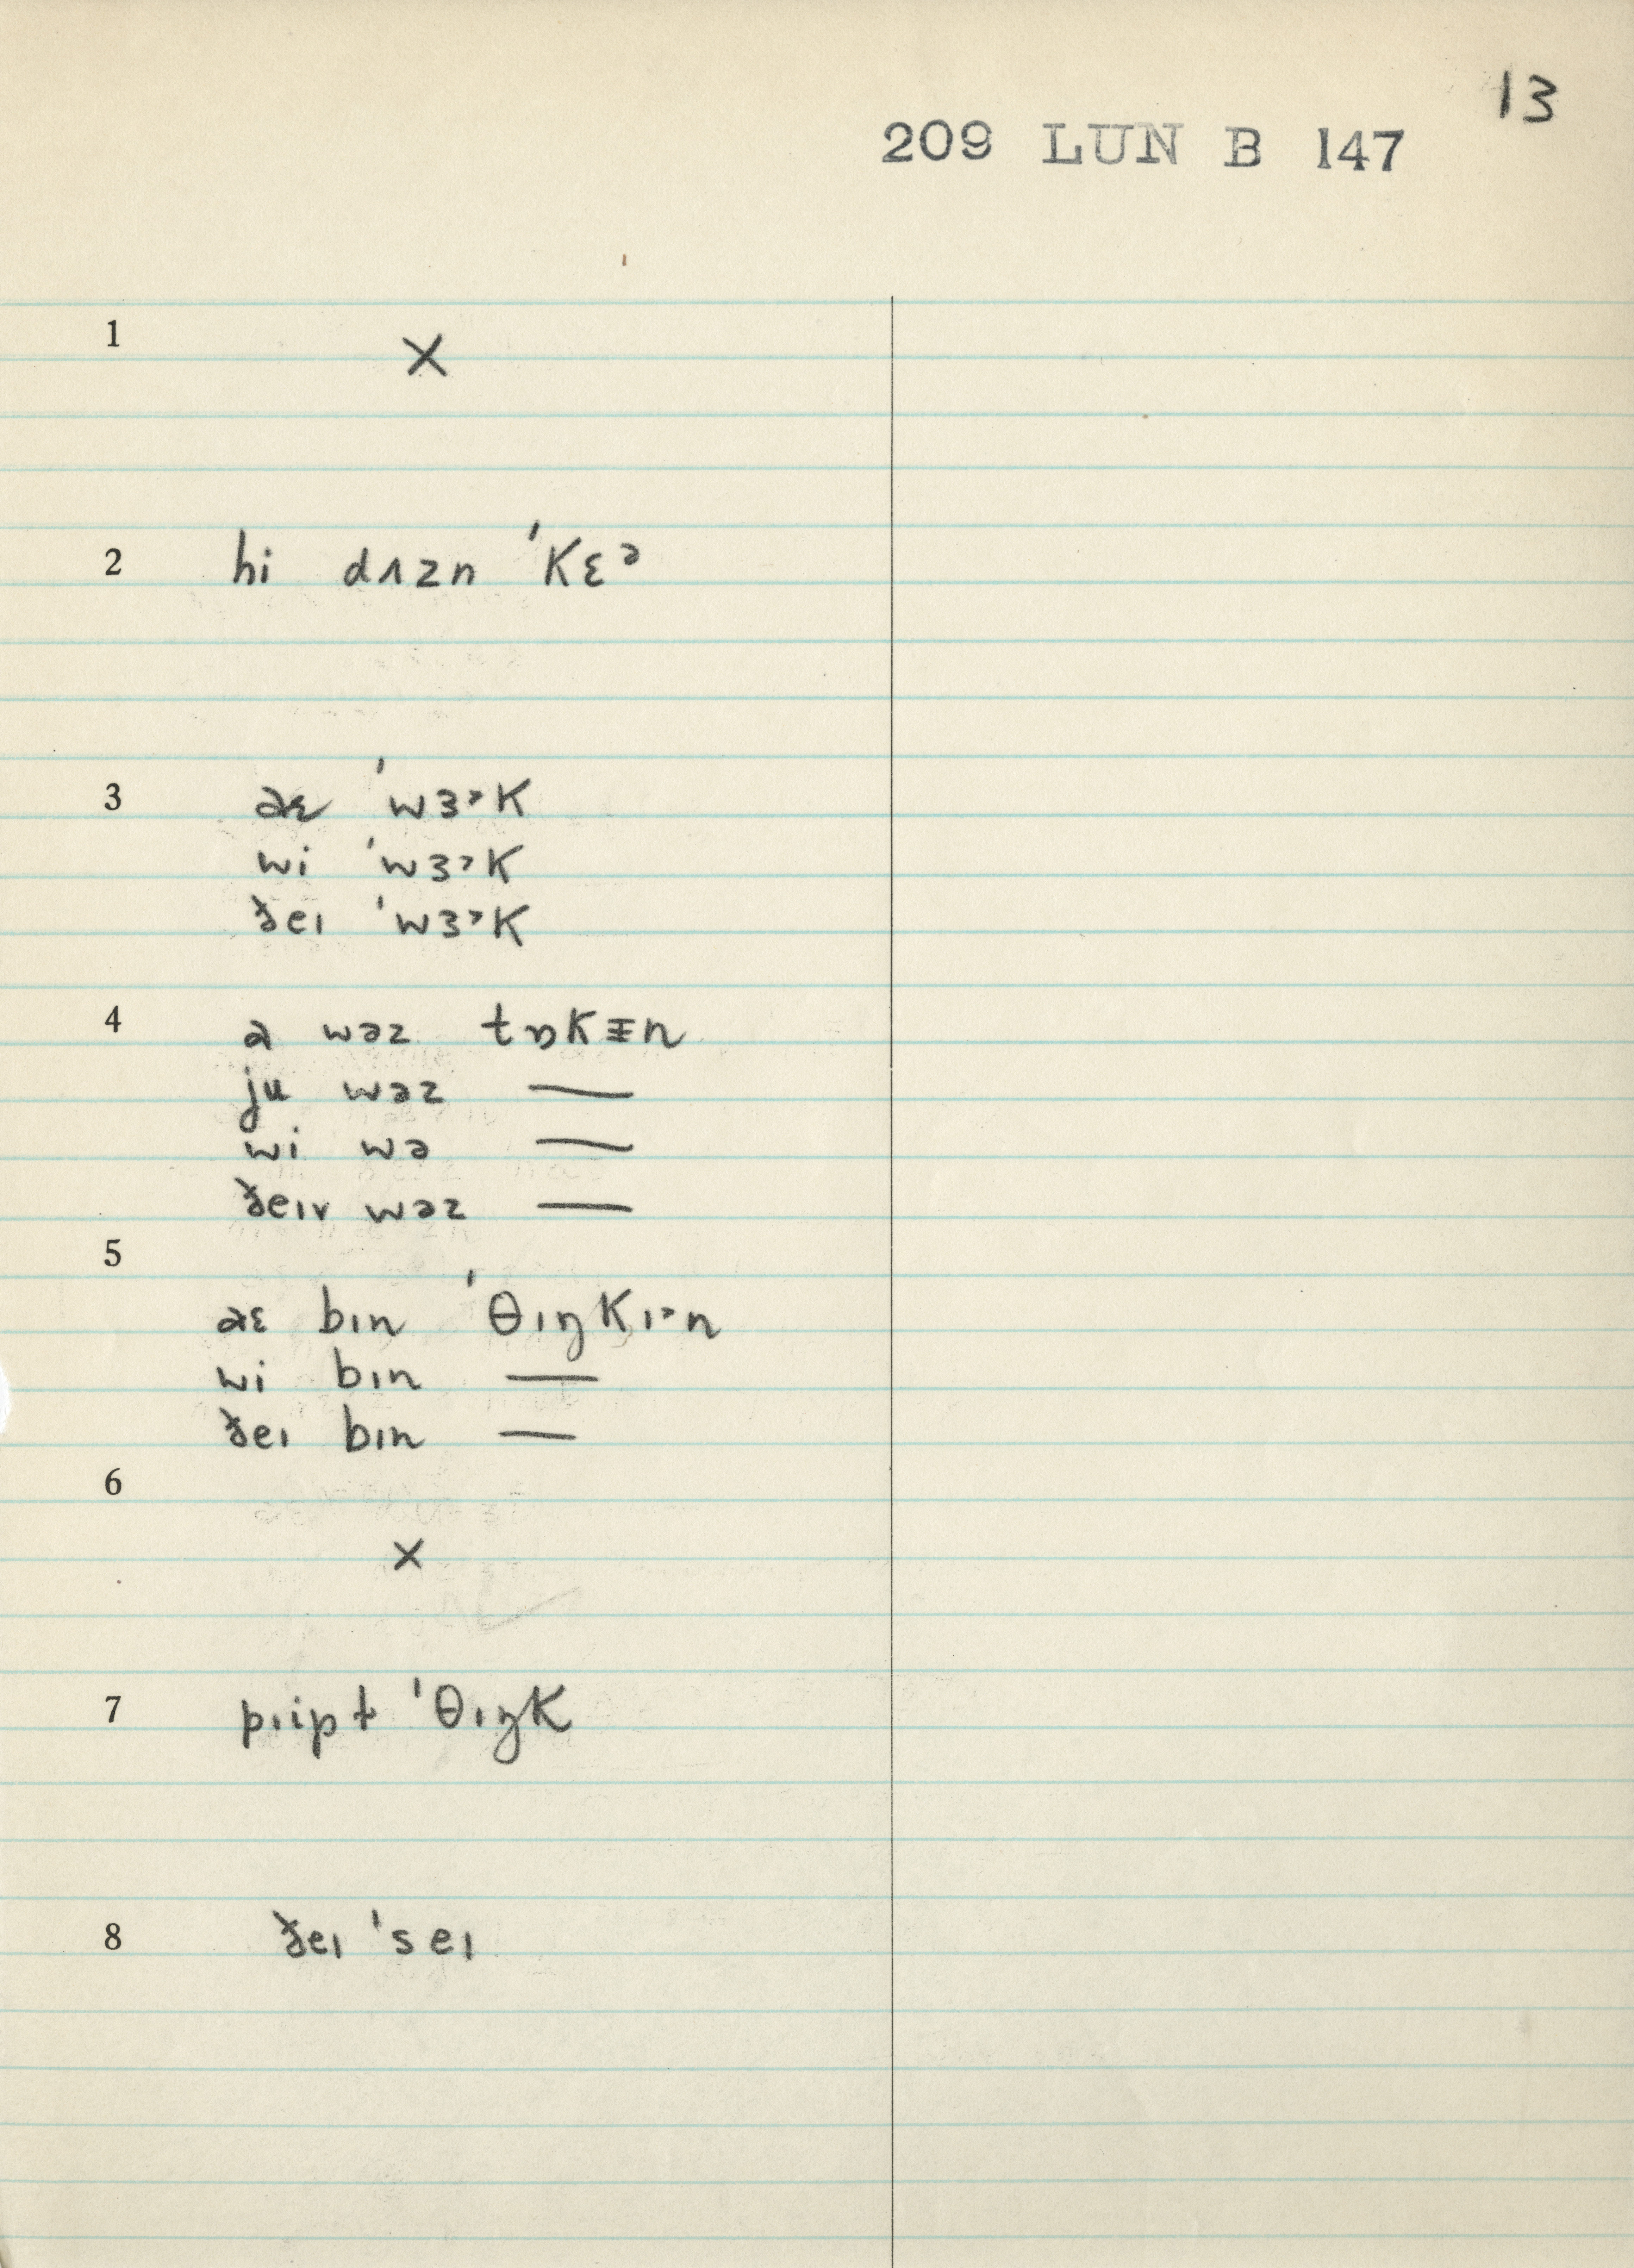 13
209 LUN B 147
1 ×
2 hi dʌzn ˈkɛᵊ
3 aɛ ˈwɜ˃k
wi ˈwɜ˃k
ðeɪ ˈwɜ˃k
4 a wəz tɒkɪ̵n
ju wəz —
wi wə —
ðeɪr wəz —
5
aɛ bɪn ˈθɪŋkɪ˃n
wi bɪn —
ðeɪ bɪn —
6
×
7 pɪipt ˈθɪŋk
8 ðeɪ ˈseɪ